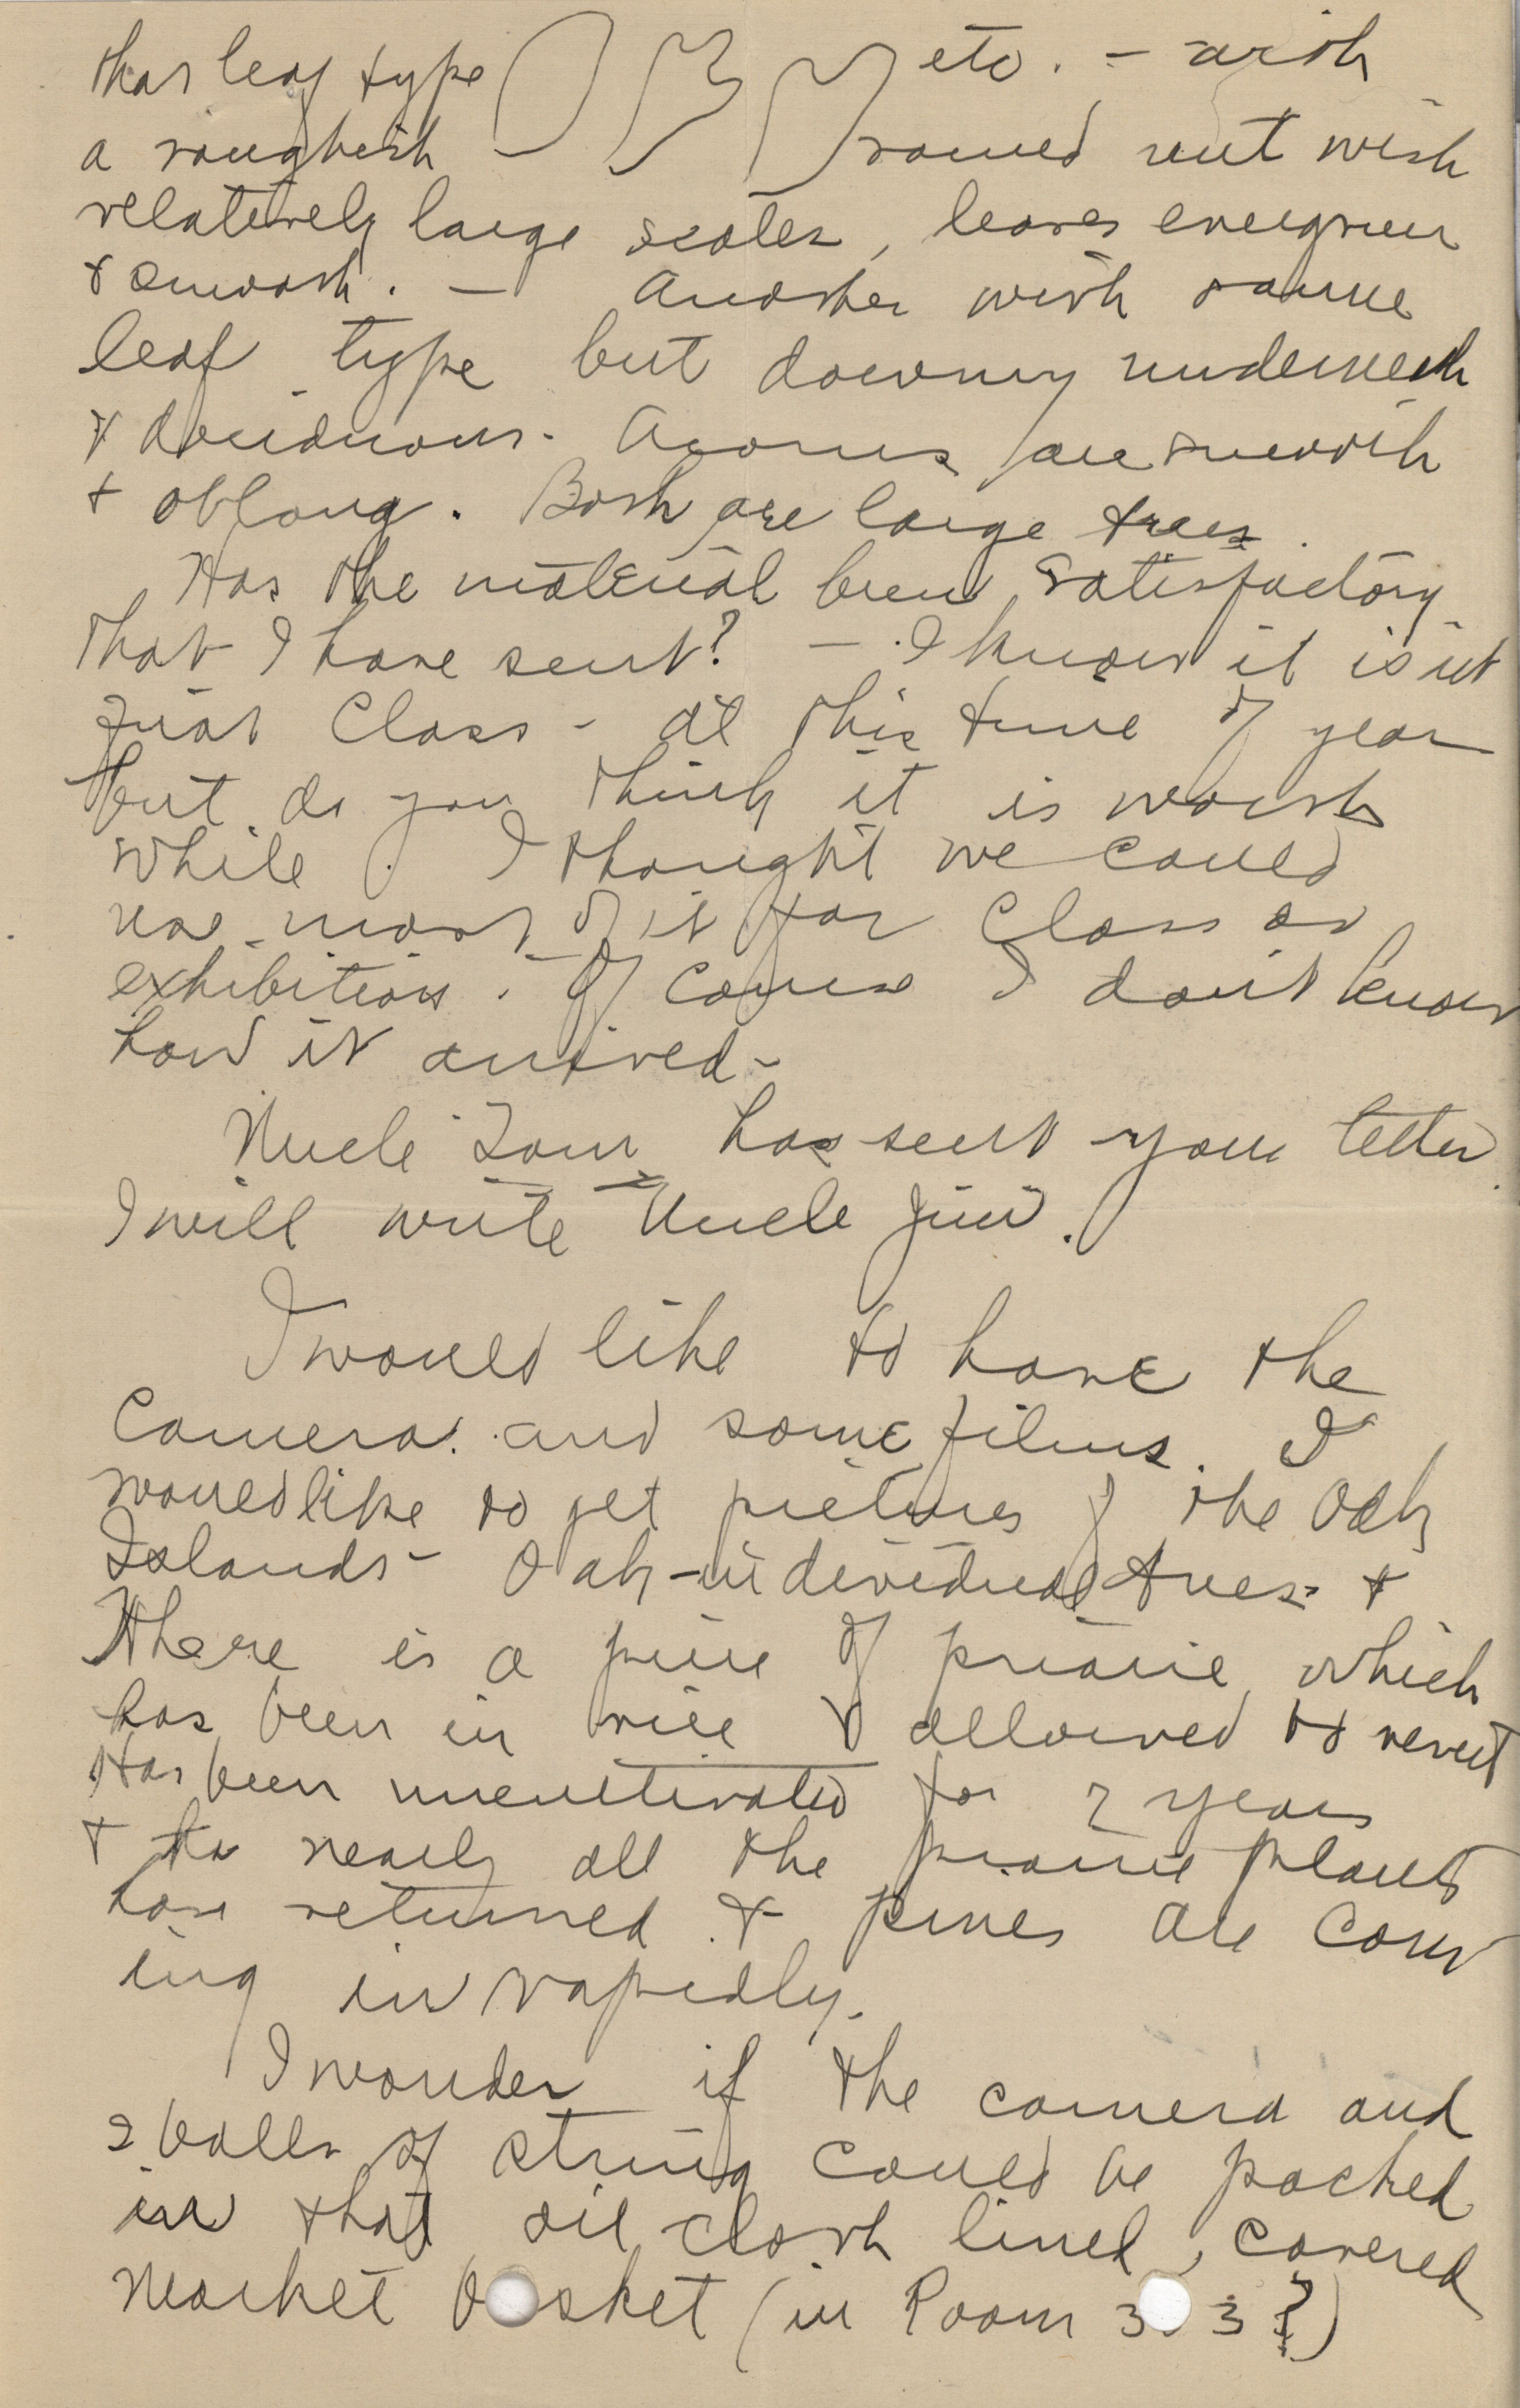 that leaf type etc. - with
a roughish - round nut with
relatively large scales, leaves evergreen
& smooth. - Another with same
leaf type but downy underneath
& deciduous - Acorns are smooth
& oblong. Both are large trees.
Has the material been satisfactory
that I have sent? - I know it isn't
first class - at this time of year
but do you think it is worth
while. I thought we could
use most of it for class or
exhibition. Of course I don't know
how it arrived -
Uncle Tom has sent your letter.
I will write Uncle Jim.
I would like to have the
camera and some films. I
would like to get pictures of the Oak
Islands - Oak - individual trees &
There is a piece of prairie which
has been in rice & allowed to revert
Has been uncultivated for 2 years
& nearly all the prairie plants
have returned & pines are com
ing in rapidly.
I wonder if the camera and
2 balls of string could be packed
in that oil cloth lined, covered
market basket (in Room 3 3?)